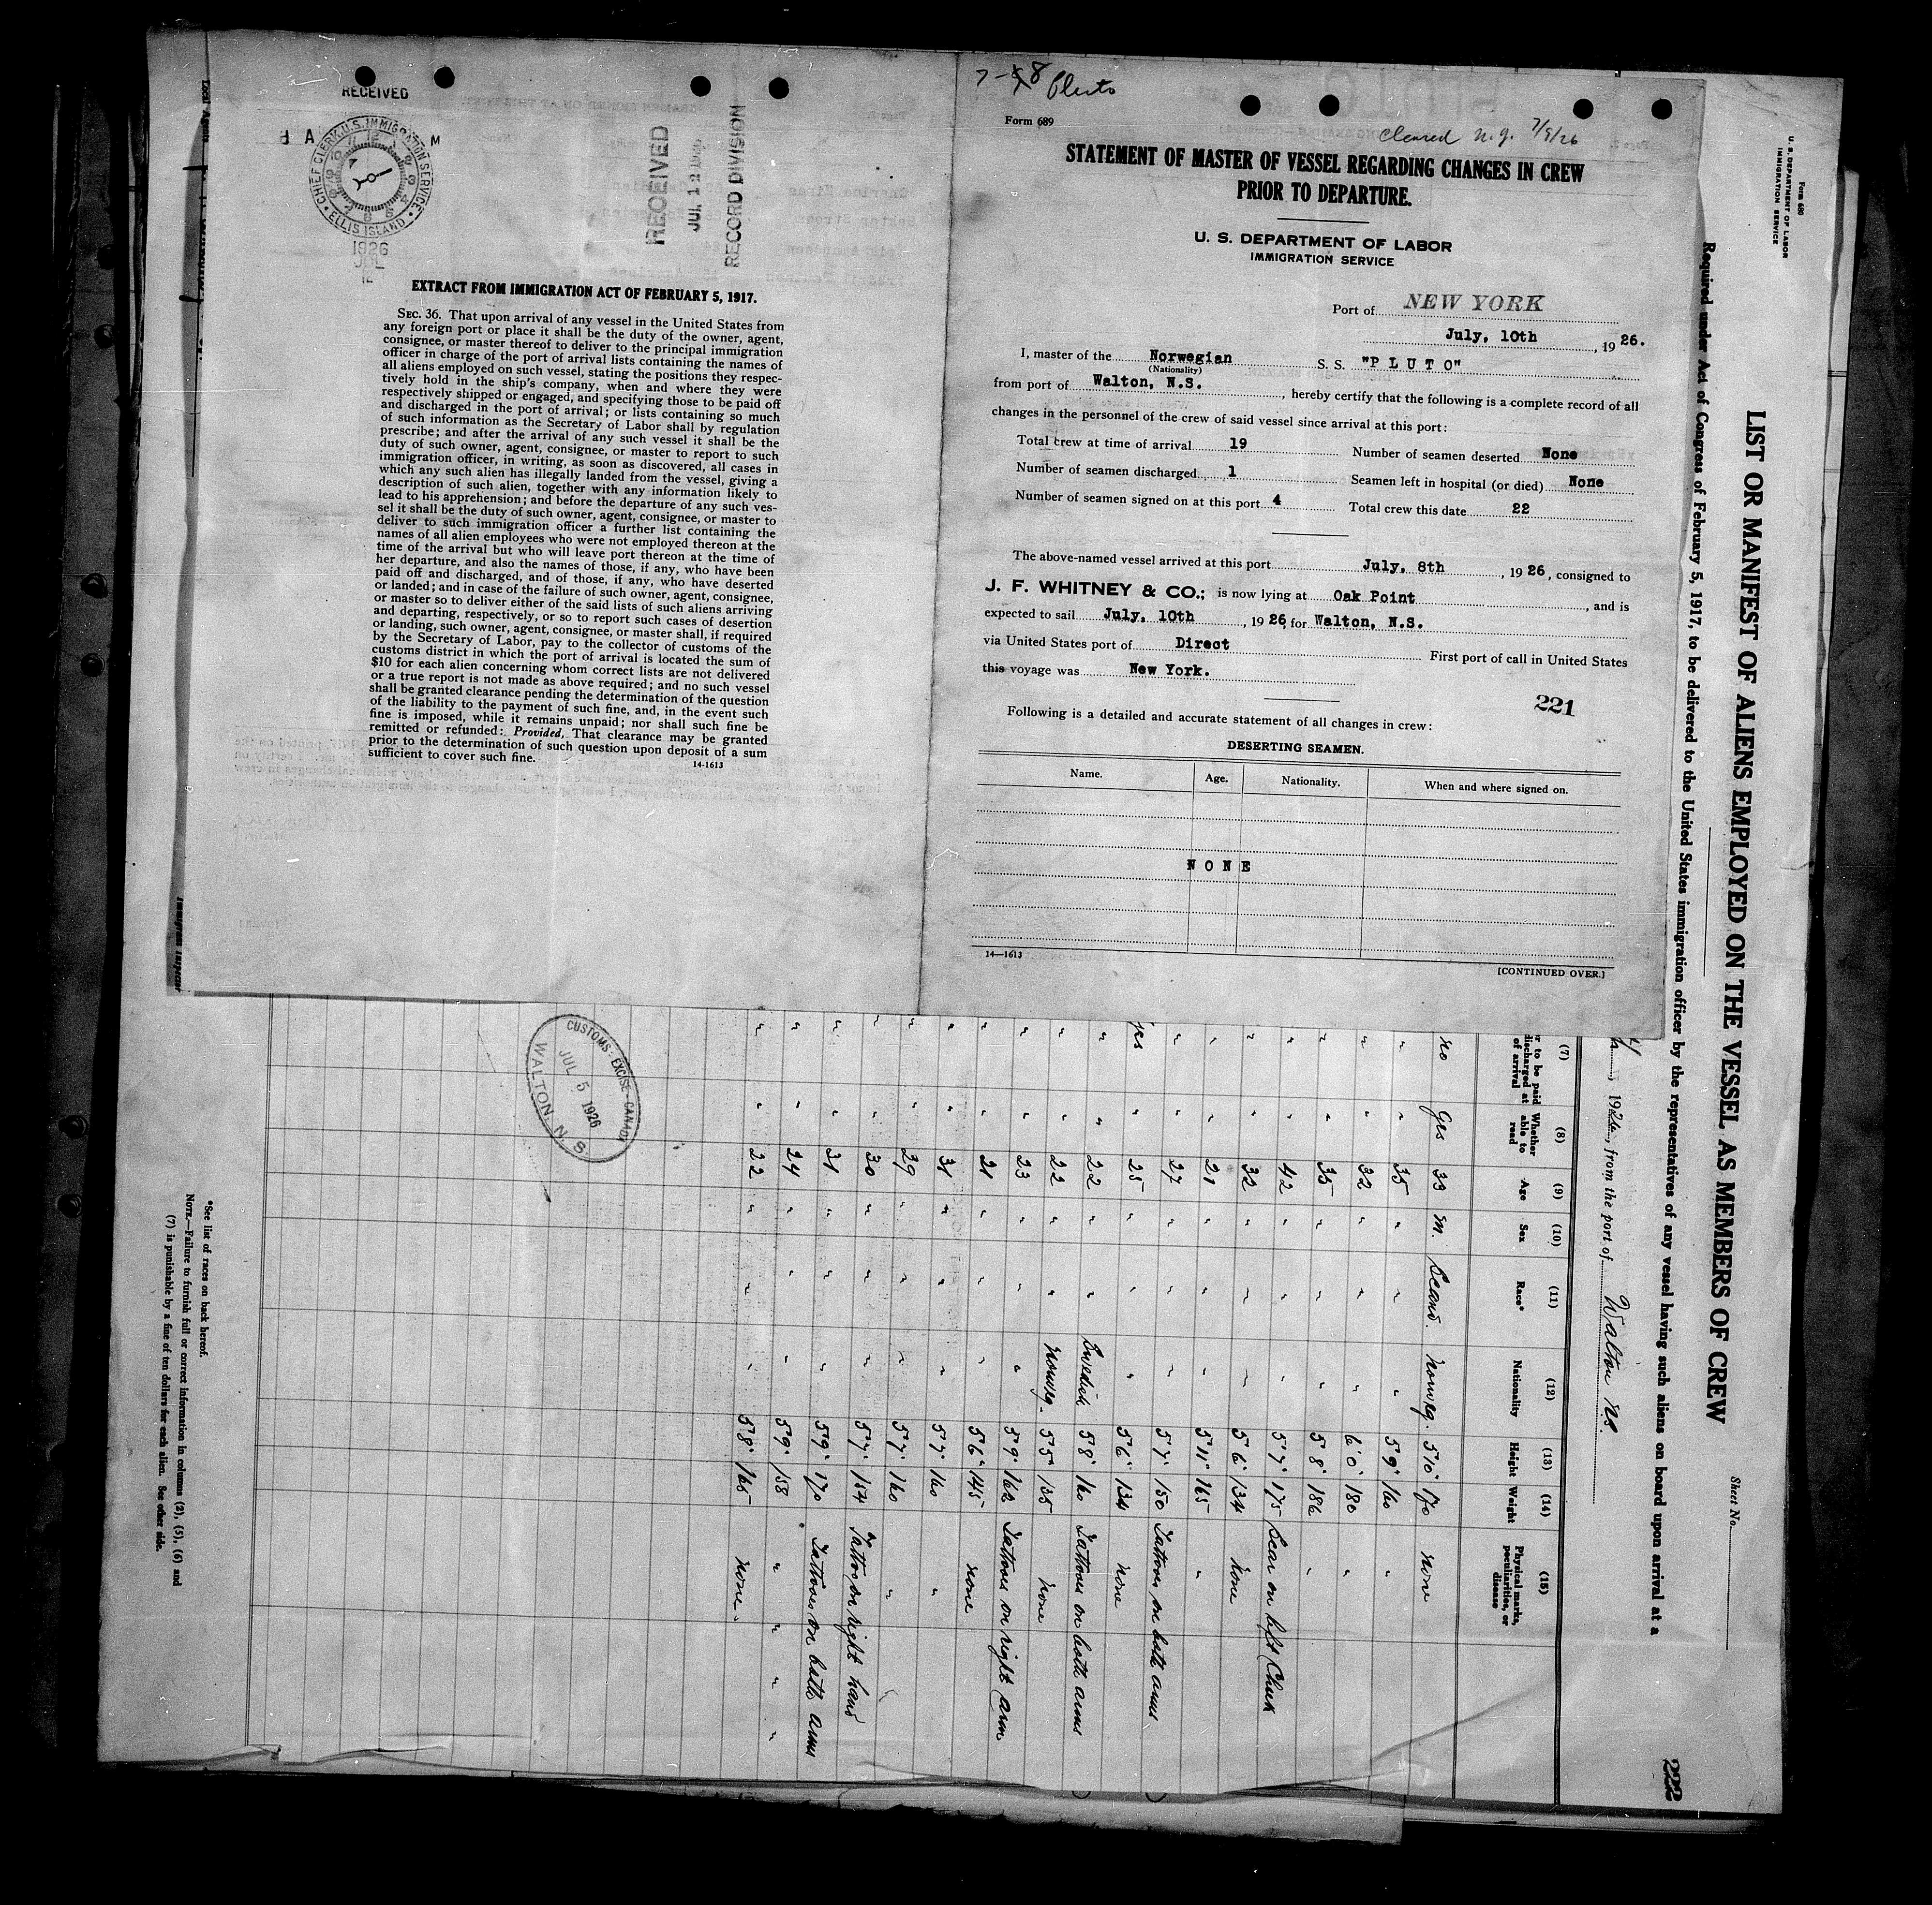 RECEIVED
CHIEF CLERK, U.S. IMMIGRATION SERVICE
ELLIS ISLAND
A M
1926
JUL
12
RECEIVED
JUL 12 1926
RECORD DIVISION
EXTRACT FROM IMMIGRATION ACT OF FEBRUARY 5, 1917.
SEC. 36. That upon arrival of any vessel in the United States from
any foreign port or place it shall be the duty of the owner, agent,
consignee, or master thereof to deliver to the principal immigration
officer in charge of the port of arrival lists containing the names of
all aliens employed on such vessel, stating the positions they respec-
tively hold in the ship's company, when and where they were
respectively shipped or engaged, and specifying those to be paid off
and discharged in the port of arrival; or lists containing so much
of such information as the Secretary of Labor shall by regulation
prescribe; and after the arrival of any such vessel it shall be the
duty of such owner, agent, consignee, or master to report to such
immigration officer, in writing, as soon as discovered, all cases in
which any such alien has illegally landed from the vessel, giving a
description of such alien, together with any information likely to
lead to his apprehension; and before the departure of any such ves-
sel it shall be the duty of such owner, agent, consignee, or master to
deliver to such immigration officer a further list containing the
names of all alien employees who were not employed thereon at the
time of the arrival but who will leave port thereon at the time of
her departure, and also the names of those, if any, who have been
paid off and discharged, and of those, if any, who have deserted
or landed; and in case of the failure of such owner, agent, consignee,
or master so to deliver either of the said lists of such aliens arriving
and departing, respectively, or so to report such cases of desertion
or landing, such owner, agent, consignee, or master shall, if required
by the Secretary of Labor, pay to the collector of customs of the
customs district in which the port of arrival is located the sum of
$10 for each alien concerning whom correct lists are not delivered
or a true report is not made as above required; and no such vessel
shall be granted clearance pending the determination of the question
of the liability to the payment of such fine, and, in the event such
fine is imposed, while it remains unpaid; nor shall such fine be
remitted or refunded: Provided, That clearance may be granted
prior to the determination of such question upon deposit of a sum
sufficient to cover such fine.
14-1613
Local Agents
Immigrant Inspector
7-8 Pluto
Form 689
Cleared N.Y. 7/9/26
STATEMENT OF MASTER OF VESSEL REGARDING CHANGES IN CREW
PRIOR TO DEPARTURE.
U. S. DEPARTMENT OF LABOR
IMMIGRATION SERVICE
Port of NEW YORK
July, 10th, 19 26.
I, master of the Norwegian S. S. "P L U T O"
(Nationality)
from port of Walton, N.S., hereby certify that the following is a complete record of all
changes in the personnel of the crew of said vessel since arrival at this port:
Total crew at time of arrival 19 Number of seamen deserted None
Number of seamen discharged 1 Seamen left in hospital (or died) None
Number of seamen signed on at this port 4 Total crew this date 22
The above-named vessel arrived at this port July, 8th, 19 26, consigned to
J. F. WHITNEY & CO.; is now lying at Oak Point, and is
expected to sail July, 10th, 19 26, for Walton, N.S.
via United States port of Direct First port of call in United States
this voyage was New York.
221
Following is a detailed and accurate statement of all changes in crew:
DESERTING SEAMEN.
Name. Age. Nationality. When and where signed on.
N O N E
14—1613
[CONTINUED OVER.]
Form 680
U. S. DEPARTMENT OF LABOR
IMMIGRATION SERVICE
LIST OR MANIFEST OF ALIENS EMPLOYED ON THE VESSEL AS MEMBERS OF CREW
Sheet No.
Required under Act of Congress of February 5, 1917, to be delivered to the United States immigration officer by the representatives of any vessel having such aliens on board upon arrival at a
, 1926, from the port of Walton N.S.
222
(7) (8) (9) (10) (11) (12) (13) (14) (15)
r to be paid discharged at of arrival Whether able to read Age Sex Race* Nationality Height Weight Physical marks, peculiarities, or disease
no yes 33 m. Scand. norweg. 5'10" 170 none
" " 35 " " " 5'9" 160 "
" " 32 " " " 6'0" 180 "
" " 35 " " " 5'8" 186 "
" " 42 " " " 5'7" 175 Scar on left Cheek
" " 32 " " " 5'6" 134 none
" " 21 " " " 5'11" 165 "
" " 27 " " " 5'7" 150 Tattoos on both arms
yes " 25 " " " 5'6" 134 none
" " 22 " " Swedish 5'8" 160 Tattoos on both arms
" " 22 " " norweg. 5'5" 135 none
" " 23 " " " 5'9" 162 Tattoos on right arm
" " 21 " " " 5'6" 145 none
" " 31 " " " 5'7" 160 "
" " 29 " " " 5'7" 160 "
" " 30 " " " 5'7" 154 Tattoo on right hand
" " 31 " " " 5'9" 170 Tattoos on both arms
" " 24 " " " 5'9" 158 " " " "
" " 22 " " " 5'8" 165 none.
CUSTOMS - EXCISE - CANADA
JUL 5 1926
WALTON N. S.
*See list of races on back hereof.
NOTE.—Failure to furnish full or correct information in columns (2), (5), (6) and
(7) is punishable by a fine of ten dollars for each alien. See other side.